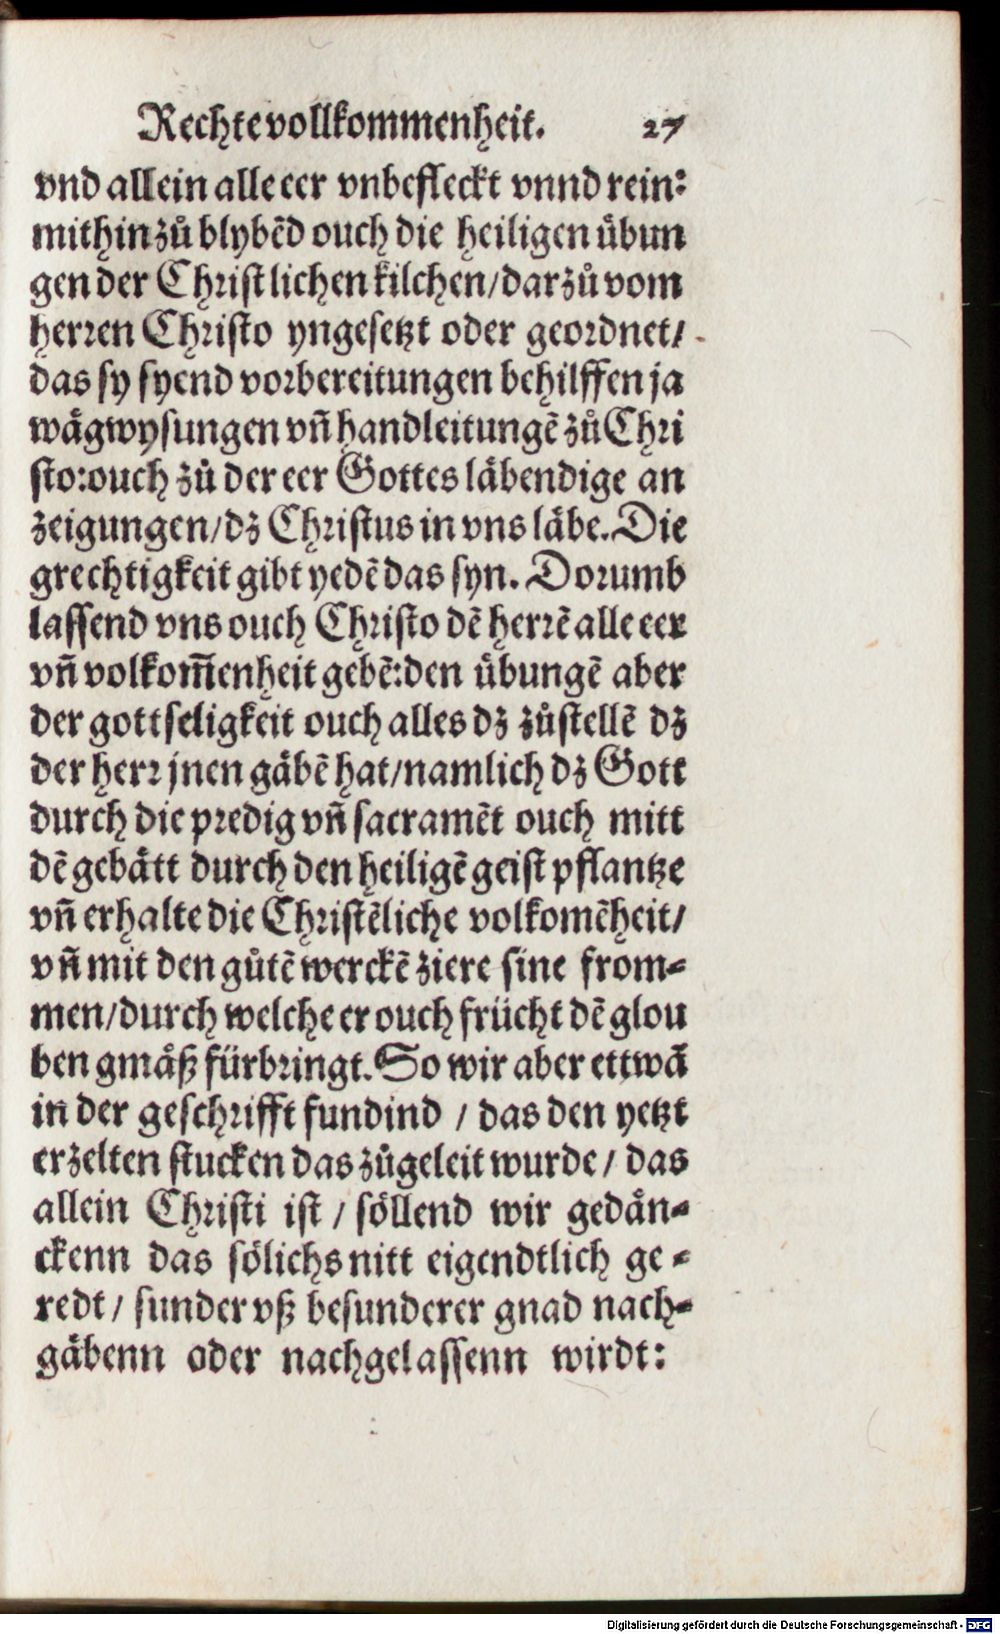 Rechte vollkommenheit. 27
vnd allein alle eer vnbefleckt vnnd rein:
mithin zů blybẽd ouch die heiligen übun
gen der Christlichen kilchen/darzů vom
herren Christo yngesetzt oder geordnet/
das sy syend vorbereitungen behilffen ja
wägwysungen vñ handleitungẽ zů Chri
sto:ouch zů der eer Gottes läbendige an
zeigungen/dz Christus in vns läbe. Die
grechtigkeit gibt yedẽ das syn. Dorumb
lassend vns ouch Christo dẽ herrẽ alle eer
vñ volkom̃enheit gebẽ:den übungẽ aber
der gottseligkeit ouch alles dz zůstellẽ dz
der herr jnen gäbẽ hat/namlich dz Gott
durch die predig vñ sacramẽt ouch mitt
dẽ gebätt durch den heiligẽ geist pflantze
vñ erhalte die Christẽliche volkomẽheit/
vñ mit den gůtẽ werckẽ ziere sine from-
men/durch welche er ouch frücht dẽ glou
ben gmäß fürbringt. So wir aber ettwã
in der geschrifft fundind / das den yetzt
erzelten stucken das zůgeleit wurde / das
allein Christi ist / söllend wir gedän-
ckenn das sölichs nitt eigendtlich ge-
redt / sunder vß besunderer gnad nach-
gäbenn oder nachgelassenn wirdt:
Digitalisierung gefördert durch die Deutsche Forschungsgemeinschaft - DFG